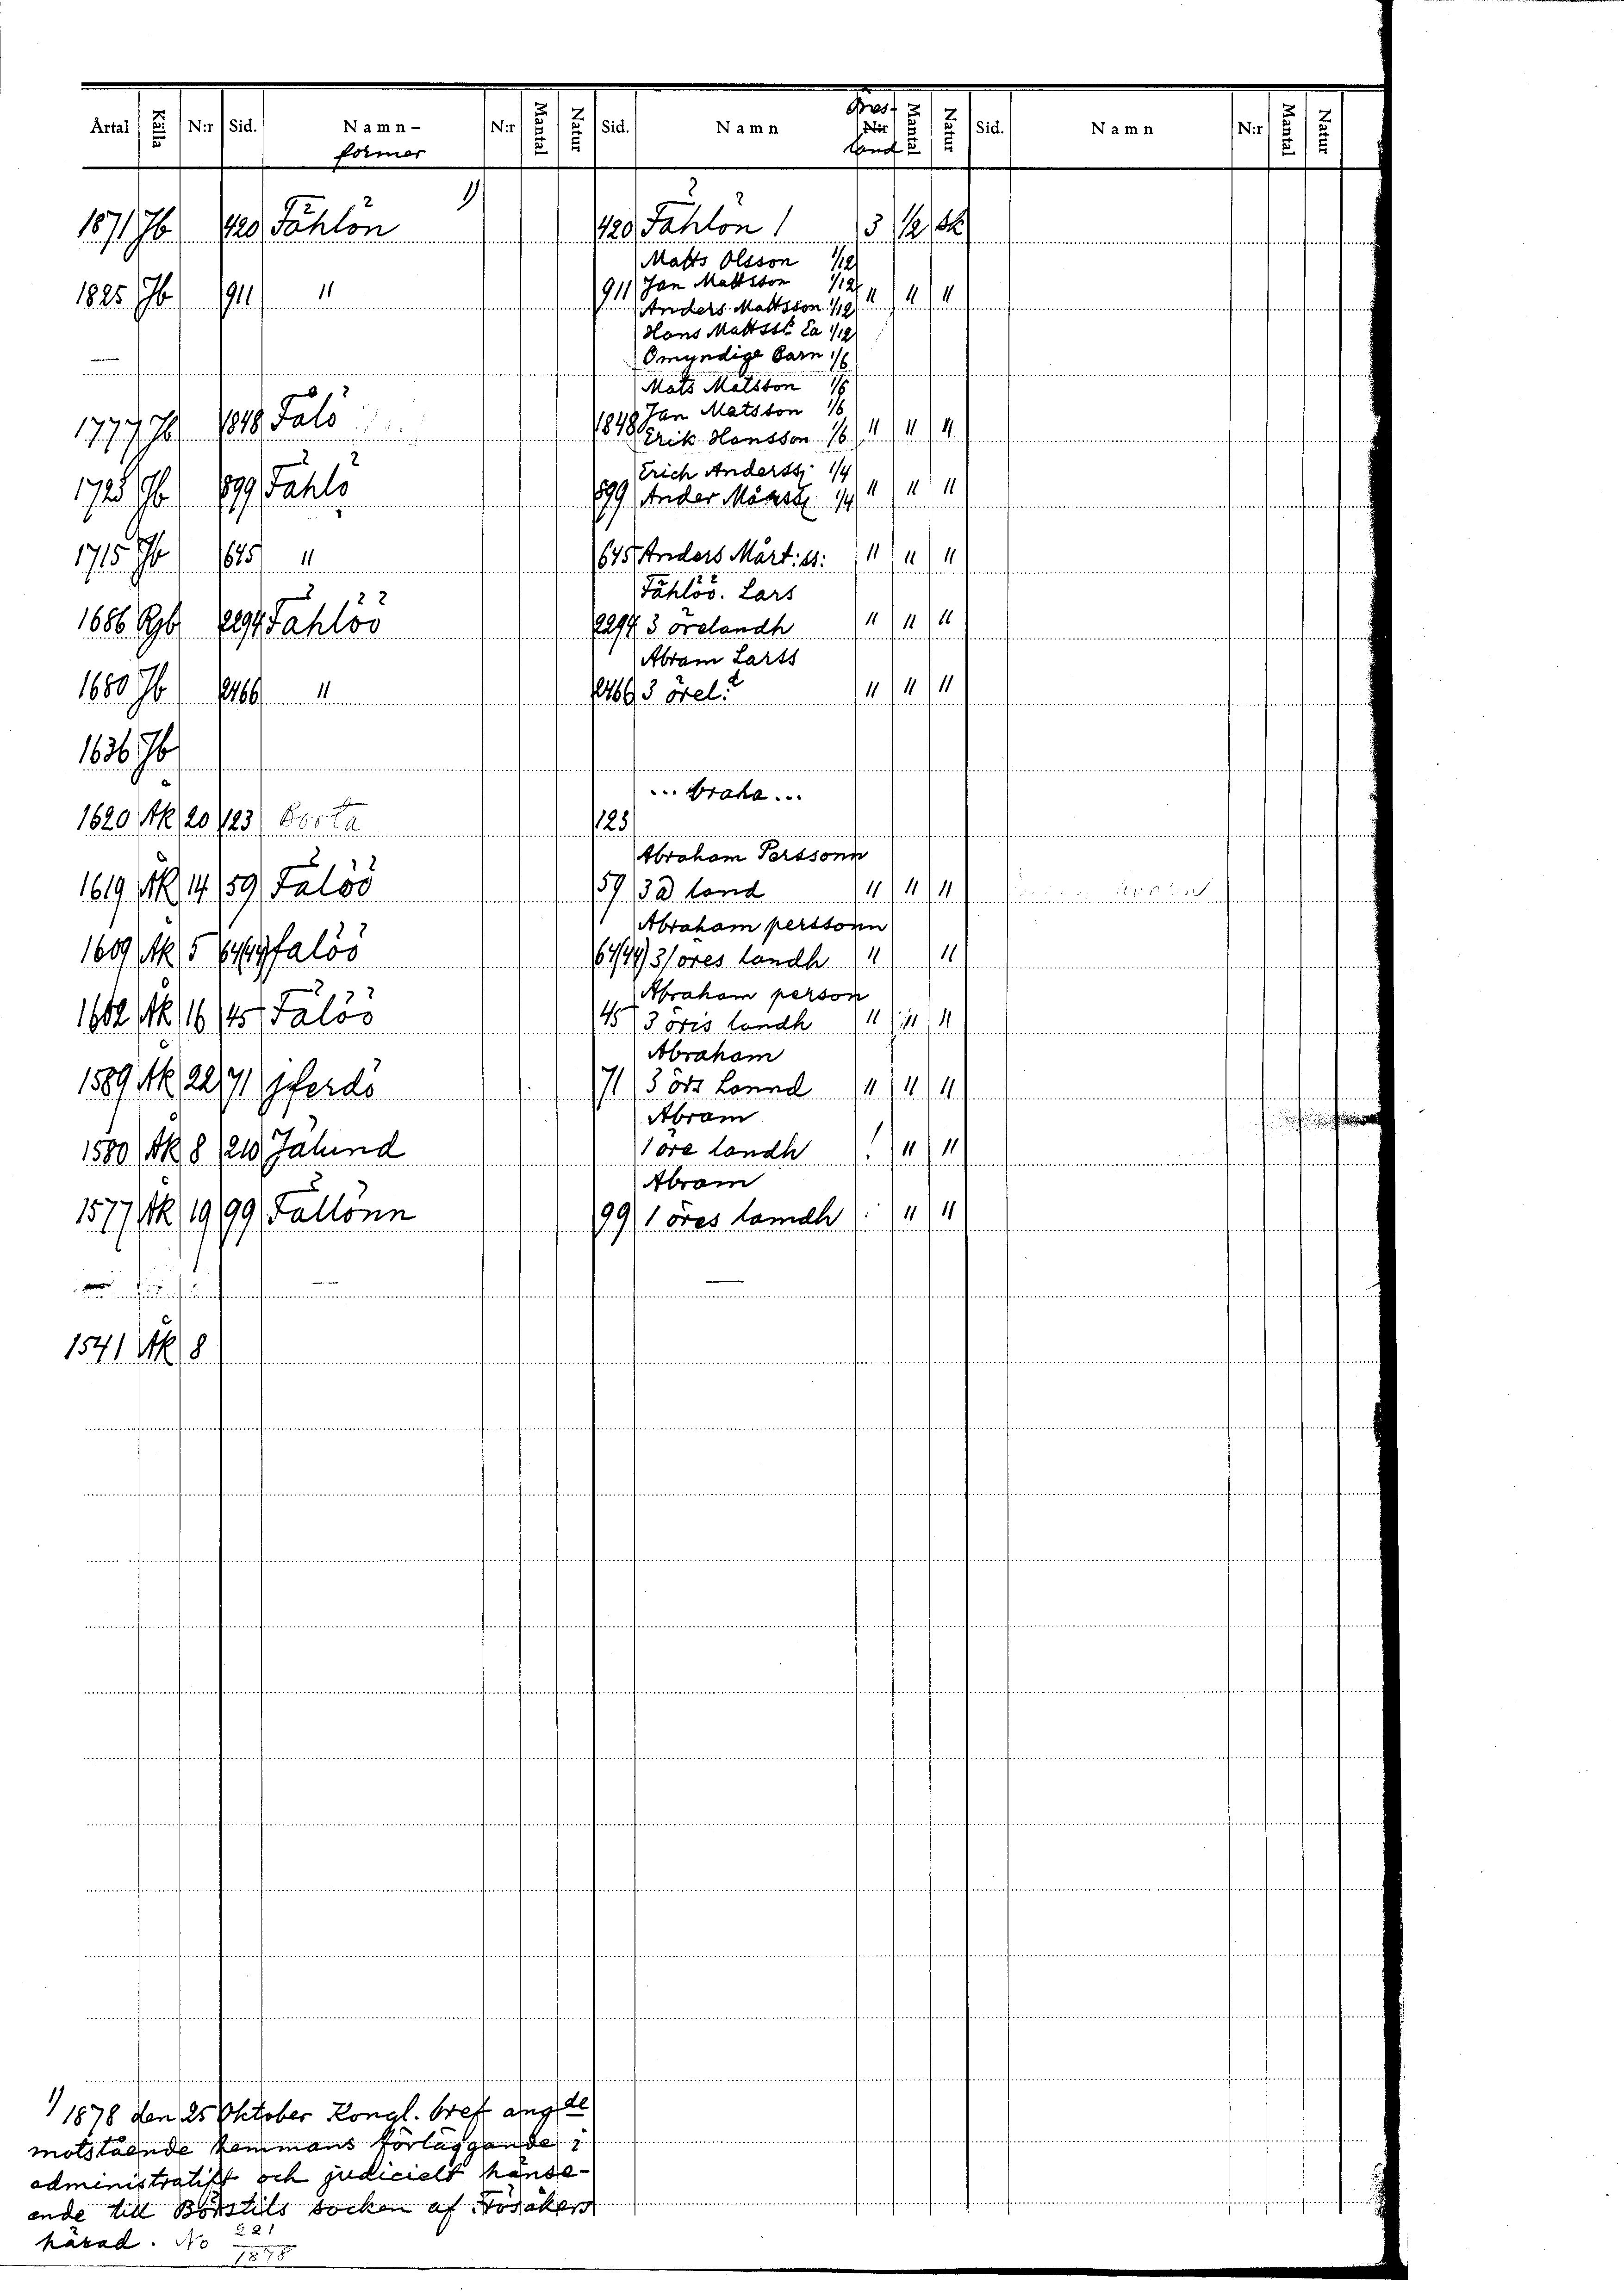 Årtal Källa N:r Sid. Namn-former N:r Mantal Natur Sid. Namn N:r land Mantal Natur Sid. Namn N:r Mantal Natur
1871 Jb 420 Fåhlön 1) 420 Fåhlön 1 3 1/2 Sk
Matts Olsson 1/12
1825 Jb 911 " 911 Jan Mattsson 1/12 " " "
Anders Mattsson 1/12
Hans Mattss: Ea 1/12
Omyndige Barn 1/6
Mats Matsson 1/6
1777 Jb 1848 Falö 1848 Jan Matsson 1/6 " " "
Erik Hansson 1/6
Erich Anderss: 1/4
1725 Jb 899 Fåhlö 899 Ander 1/4 " " "
1715 Jb 645 " 645 Anders Mårt:ss: " " "
Fåhlöö. Lars
1686 2294 Fåhlöö 2294 3 örelandh " " "
Abram Larss
1680 Jb 2466 " 2466 3 örel:d " " "
1636 Jb
... braha ...
1620 Ak 20 123 Borta 123
Abraham Perssonn
1619 Ak 14 59 Fålöö 59 3 land " " "
Abraham perssonn
1609 Ak 5 64/44 falöö 64/44 3/öres landh " "
Abraham person
1602 Ak 16 45 Fålöö 45 3 öris landh " " "
Abraham
1589 Ak 22 71 jferdö 71 3 örs Lannd " " "
Abram
1580 Ak 8 210 Jälund 1 öre landh ! " "
Abram
1577 Ak 19 99 Fållönn 99 1 öres lamdh " "
1541 Ak 8
1) 1878 den 25 Oktober Kongl. bref angde
motstående hemmans förläggande i
administratift och judicielt hänse-
ende till Börstils socken af Frösåkers
härad. No 221/1878